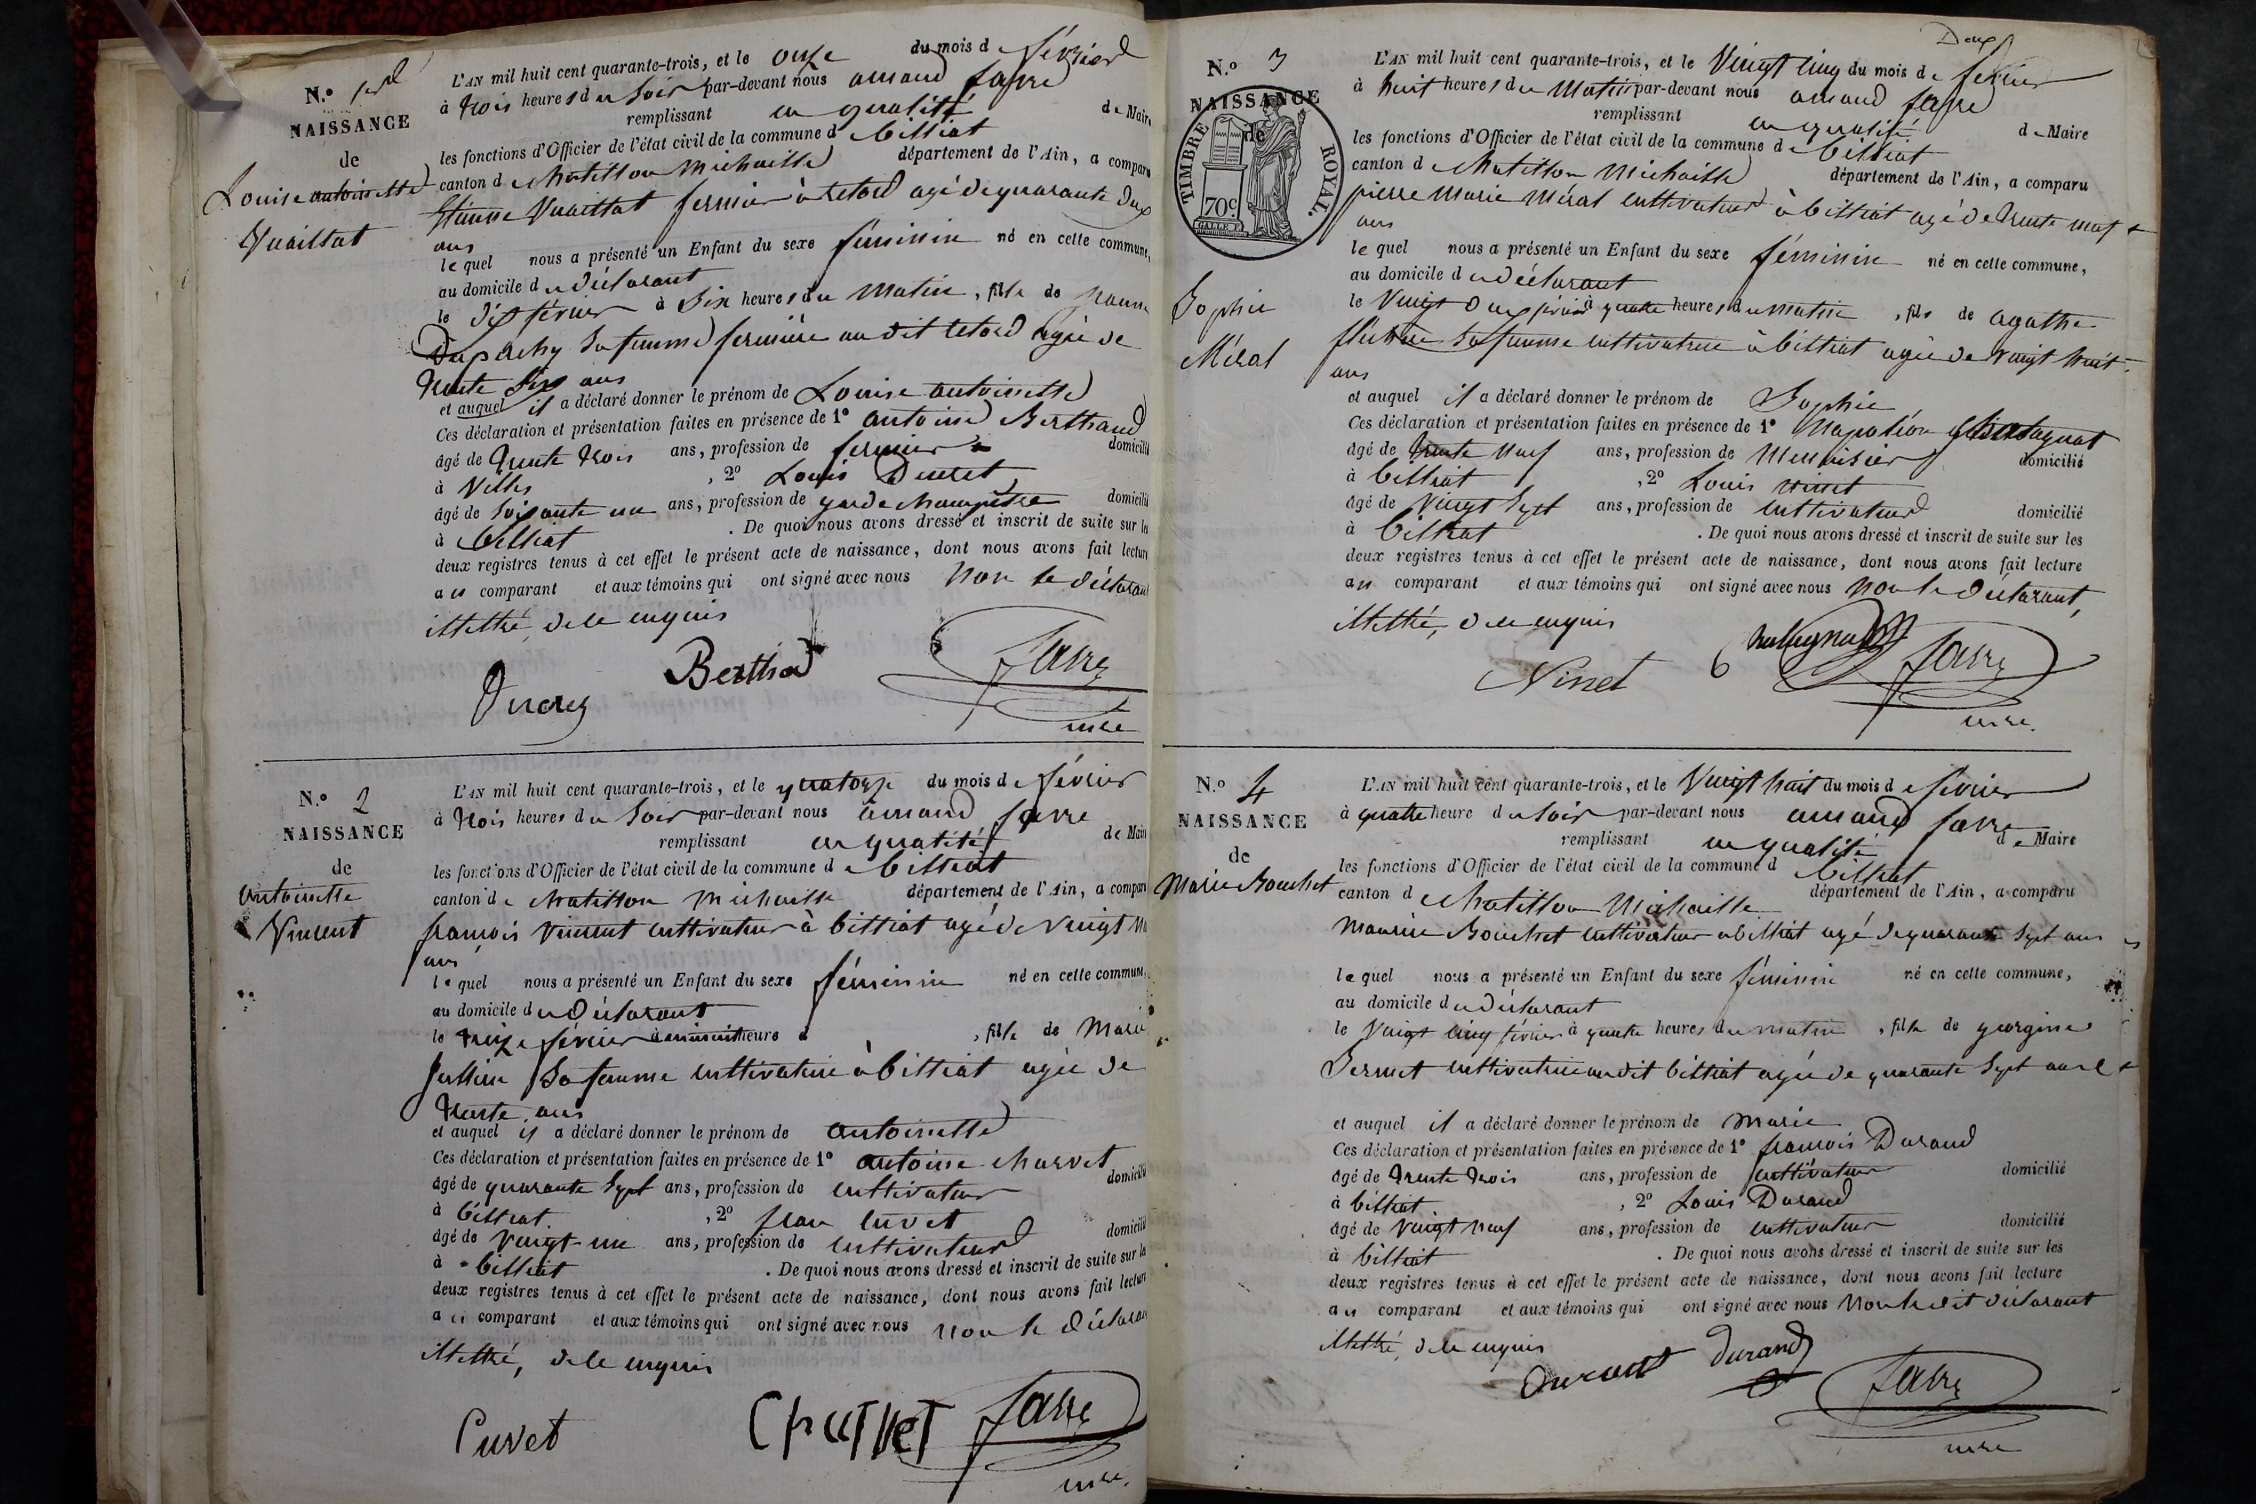 N.º 1er
NAISSANCE
de
Louise antoinette
Vuaillat
L'AN mil huit cent quarante-trois, et le onze du mois de février
à trois heures du soir par-devant nous amand favre
remplissant en qualité de Maire
les fonctions d'Officier de l'état civil de la commune de billiat
canton de chatillon michaille département de l'Ain, a comparu
Etienne Vuaillat fermier à retord agé de quarante deux
ans
lequel nous a présenté un Enfant du sexe féminin né en cette commune,
au domicile du déclarant
le dix février à six heures du matin, fille de
sa femme fermière au dit retord agée de
trente six ans
et auquel il a déclaré donner le prénom de Louise antoinette
Ces déclaration et présentation faites en présence de 1º antoine Berthaud
âgé de trente trois ans, profession de fermier domicilié
à Villes, 2º Louis Ducret
âgé de soixante un ans, profession de garde champêtre domicilié
à billiat. De quoi nous avons dressé et inscrit de suite sur les
deux registres tenus à cet effet le présent acte de naissance, dont nous avons fait lecture
au comparant et aux témoins qui ont signé avec nous non le déclarant
illettré, de ce enquis
Berthod
Favre
Ducrez
mre
N.º 2
NAISSANCE
de
antoinette
Vincent
L'AN mil huit cent quarante-trois, et le quatorze du mois de février
à trois heures du soir par-devant nous amand favre
remplissant en qualité de Maire
les fonctions d'Officier de l'état civil de la commune de billiat
canton de chatillon michaille département de l'Ain, a comparu
françois Vincent cultivateur à billiat agé de vingt
ans
lequel nous a présenté un Enfant du sexe féminin né en cette commune,
au domicile du déclarant
le treize février à minuit heure d, fille de Marie
Julline sa femme cultivatrice à billiat agée de
trente ans
et auquel il a déclaré donner le prénom de antoinette
Ces déclaration et présentation faites en présence de 1º antoine charvet
âgé de quarante sept ans, profession de cultivateur domicilié
à billiat, 2º jean cuvet
âgé de vingt-un ans, profession de cultivateur domicilié
à billiat. De quoi nous avons dressé et inscrit de suite sur les
deux registres tenus à cet effet le présent acte de naissance, dont nous avons fait lecture
au comparant et aux témoins qui ont signé avec nous non le déclarant
illettré, de ce enquis
Cuvet
Favre
mre.
Deux
N.º 3
NAISSANCE
de
TIMBRE ROYAL.
70c.
Sophie
Méral
L'AN mil huit cent quarante-trois, et le Vingt cinq du mois de fevrier
à huit heures du matin par-devant nous amand favre
remplissant en qualité de Maire
les fonctions d'Officier de l'état civil de la commune de billiat
canton de chatillon michaille département de l'Ain, a comparu
pierre marie méral cultivateur à billiat agé de trente neuf
ans
lequel nous a présenté un Enfant du sexe féminin né en cette commune,
au domicile du déclarant
le Vingt deux février à quatre heures du matin, fils de agathe
sa femme cultivatrice à billiat agée de vingt huit
ans
et auquel il a déclaré donner le prénom de Sophie
Ces déclaration et présentation faites en présence de 1º Napoléon
âgé de trente neuf ans, profession de menuisier domicilié
à billiat, 2º Louis ninet
âgé de vingt sept ans, profession de cultivateur domicilié
à billiat. De quoi nous avons dressé et inscrit de suite sur les
deux registres tenus à cet effet le présent acte de naissance, dont nous avons fait lecture
au comparant et aux témoins qui ont signé avec nous non le déclarant,
illettré, de ce enquis
Ninet
Favre
mre.
N.º 4
NAISSANCE
de
Marie Bouchet
L'AN mil huit cent quarante-trois, et le Vingt huit du mois de février
à quatre heure du soir par-devant nous amand favre
remplissant en qualité de Maire
les fonctions d'Officier de l'état civil de la commune de billiat
canton de chatillon michaille département de l'Ain, a comparu
Maurice Bouchet cultivateur à billiat agé de quarante sept ans
lequel nous a présenté un Enfant du sexe féminin né en cette commune,
au domicile du déclarant
le Vingt cinq février à quatre heures du matin, fille de georgine
Bernet cultivatrice au dit billiat agée de quarante sept ans
et auquel il a déclaré donner le prénom de marie
Ces déclaration et présentation faites en présence de 1º françois Durand
âgé de trente trois ans, profession de cultivateur domicilié
à billiat, 2º Louis Durand
âgé de vingt neuf ans, profession de cultivateur domicilié
à billiat. De quoi nous avons dressé et inscrit de suite sur les
deux registres tenus à cet effet le présent acte de naissance, dont nous avons fait lecture
au comparant et aux témoins qui ont signé avec nous non le dit déclarant
illettré, de ce enquis
durand
Favre
mre